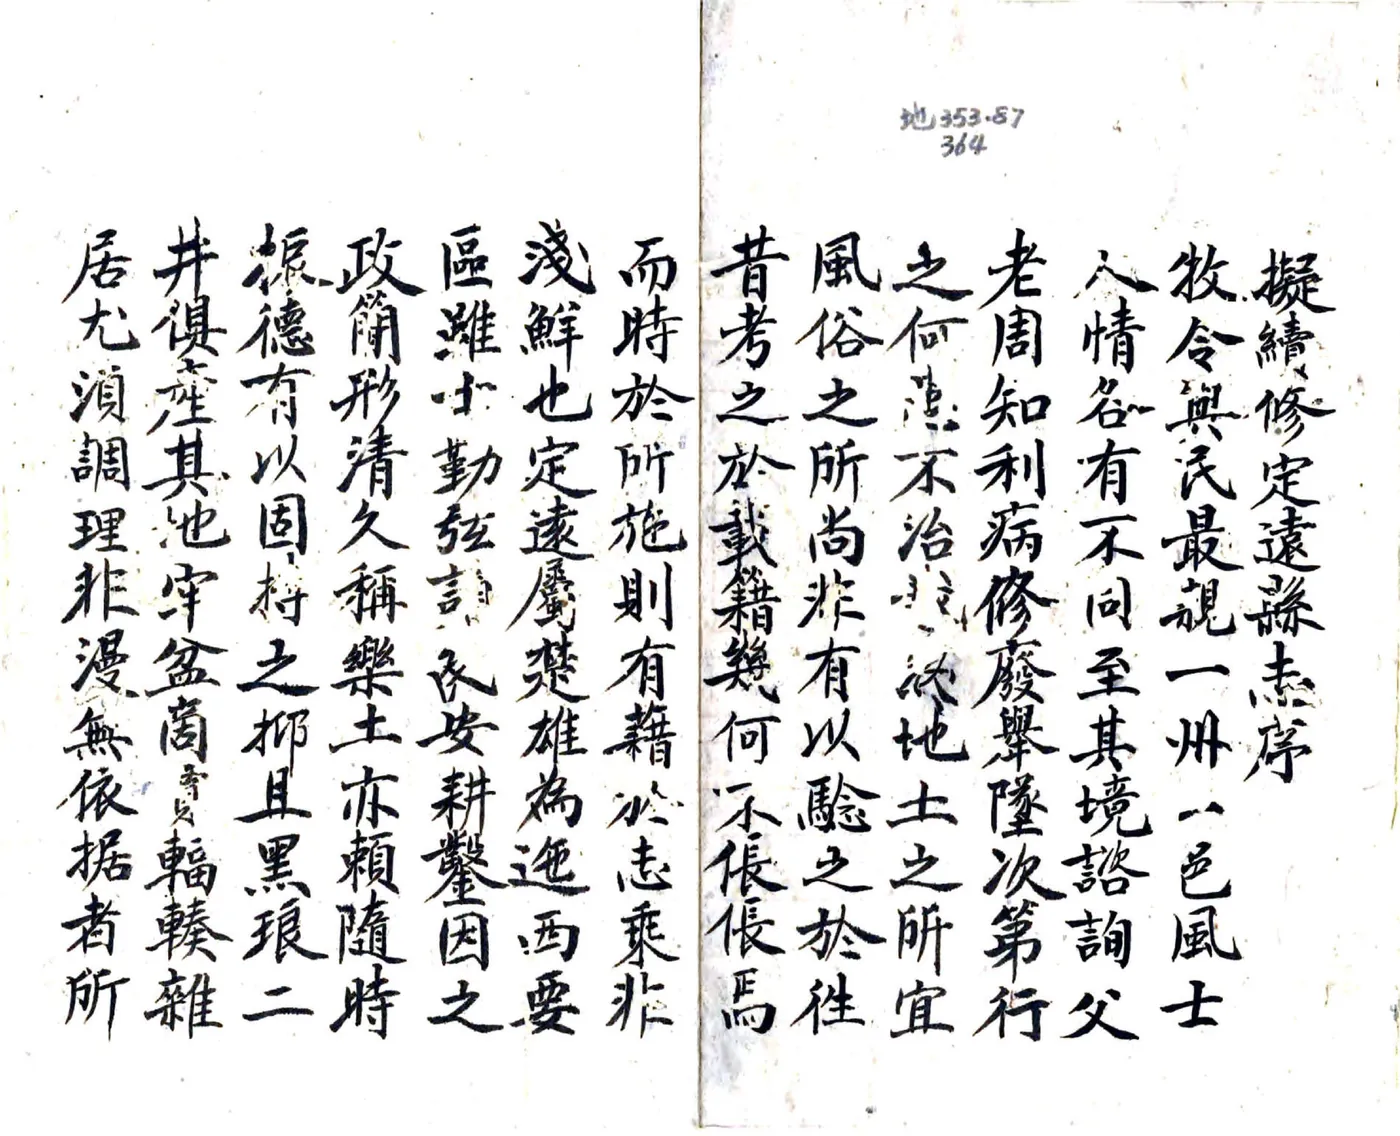 地353.87
364
擬續修定遠縣志序
牧令與民最親一州一邑風士
人情各有不同至其境諮詢父
老周知利病修廢舉墜次第行
之何患不治地土之所宜
風俗之所尚非有以驗之於徃
昔考之於載籍幾何不倀倀焉
而時於所施則有藉於志乘非
淺鮮也定遠屬楚雄為迤西要
區雖小勤弦誦民安耕鑿因之
政簡形清久稱樂土亦賴隨時
振德有以固持之抑且黑琅二
井俱產其地牢盆商賈輻輳雜
居尤湏調理非漫無依据者所